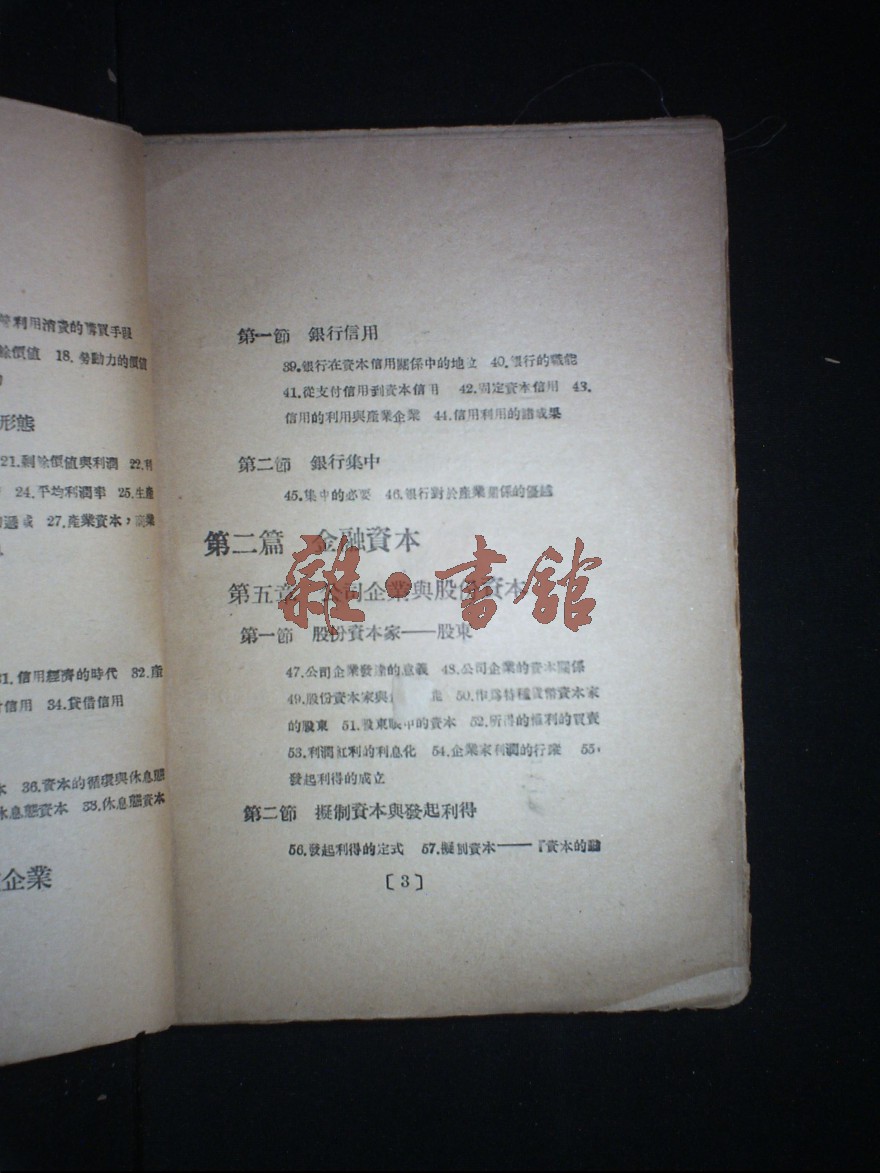 利用消費的購買手段
餘價值 18.勞動力的價值
形態
21.剩餘價值與利潤 22.利
24.平均利潤率 25.生產
27.產業資本，商業
31.信用經濟的時代 32.產
信用 34.貸借信用
本 36.資本的循環與休息態
休息態資本 38.休息態資本
企業
第一節 銀行信用
39.銀行在資本信用關係中的地位 40.銀行的職能
41.從支付信用到資本信用 42.固定資本信用 43.
信用的利用與產業企業 44.信用利用的諸成果
第二節 銀行集中
45.集中的必要 46.銀行對於產業關係的優越
第二篇 金融資本
第五章 公司企業與股份資本
第一節 股份資本家——股東
47.公司企業發達的意義 48.公司企業的資本關係
49.股份資本家與 能 50.作爲特種貨幣資本家
的股東 51.股東眼中的資本 52.所得的權利的買賣
53.利潤紅利的利息化 54.企業家利潤的行蹤 55,
發起利得的成立
第二節 擬制資本與發起利得
56.發起利得的定式 57.擬制資本——『資本的
〔3〕
雜·書館